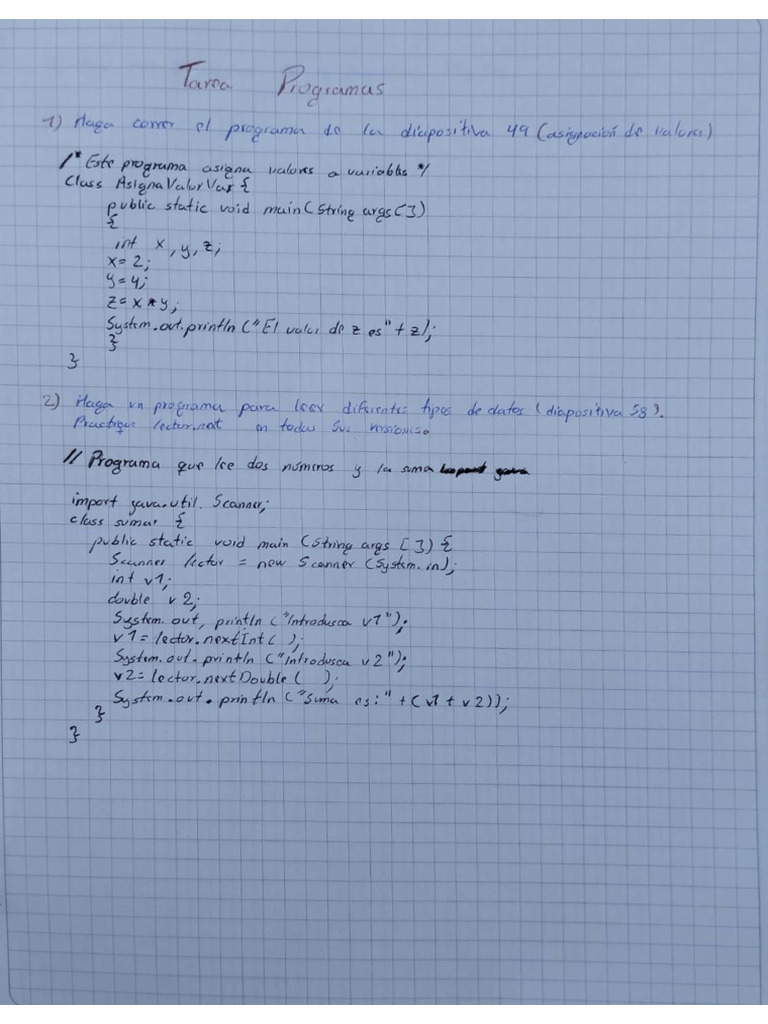 Tarea Programas
1) Haga correr el programa de la diapositiva 49 (asignación de valores)
/* Este programa asigna valores a variables */
Class AsignaValorVar {
public static void main (String args [])
{
int x, y, z;
x = 2;
y = 4;
z = x * y;
System.out.println ("El valor de z es" + z);
}
}
2) Haga un programa para leer diferentes tipos de datos (diapositiva 58).
Practique lector.next en todas sus versiones.
// Programa que lee dos números y la suma
import java.util. Scanner;
class sumar {
public static void main (String args []) {
Scanner lector = new Scanner (System.in);
int v1;
double v2;
System.out, println ("Introdusca v1");
v1 = lector.nextInt ( );
System.out.println ("Introdusca v2");
v2 = lector.nextDouble ( );
System.out.println ("Suma es:" + (v1 + v2));
}
}